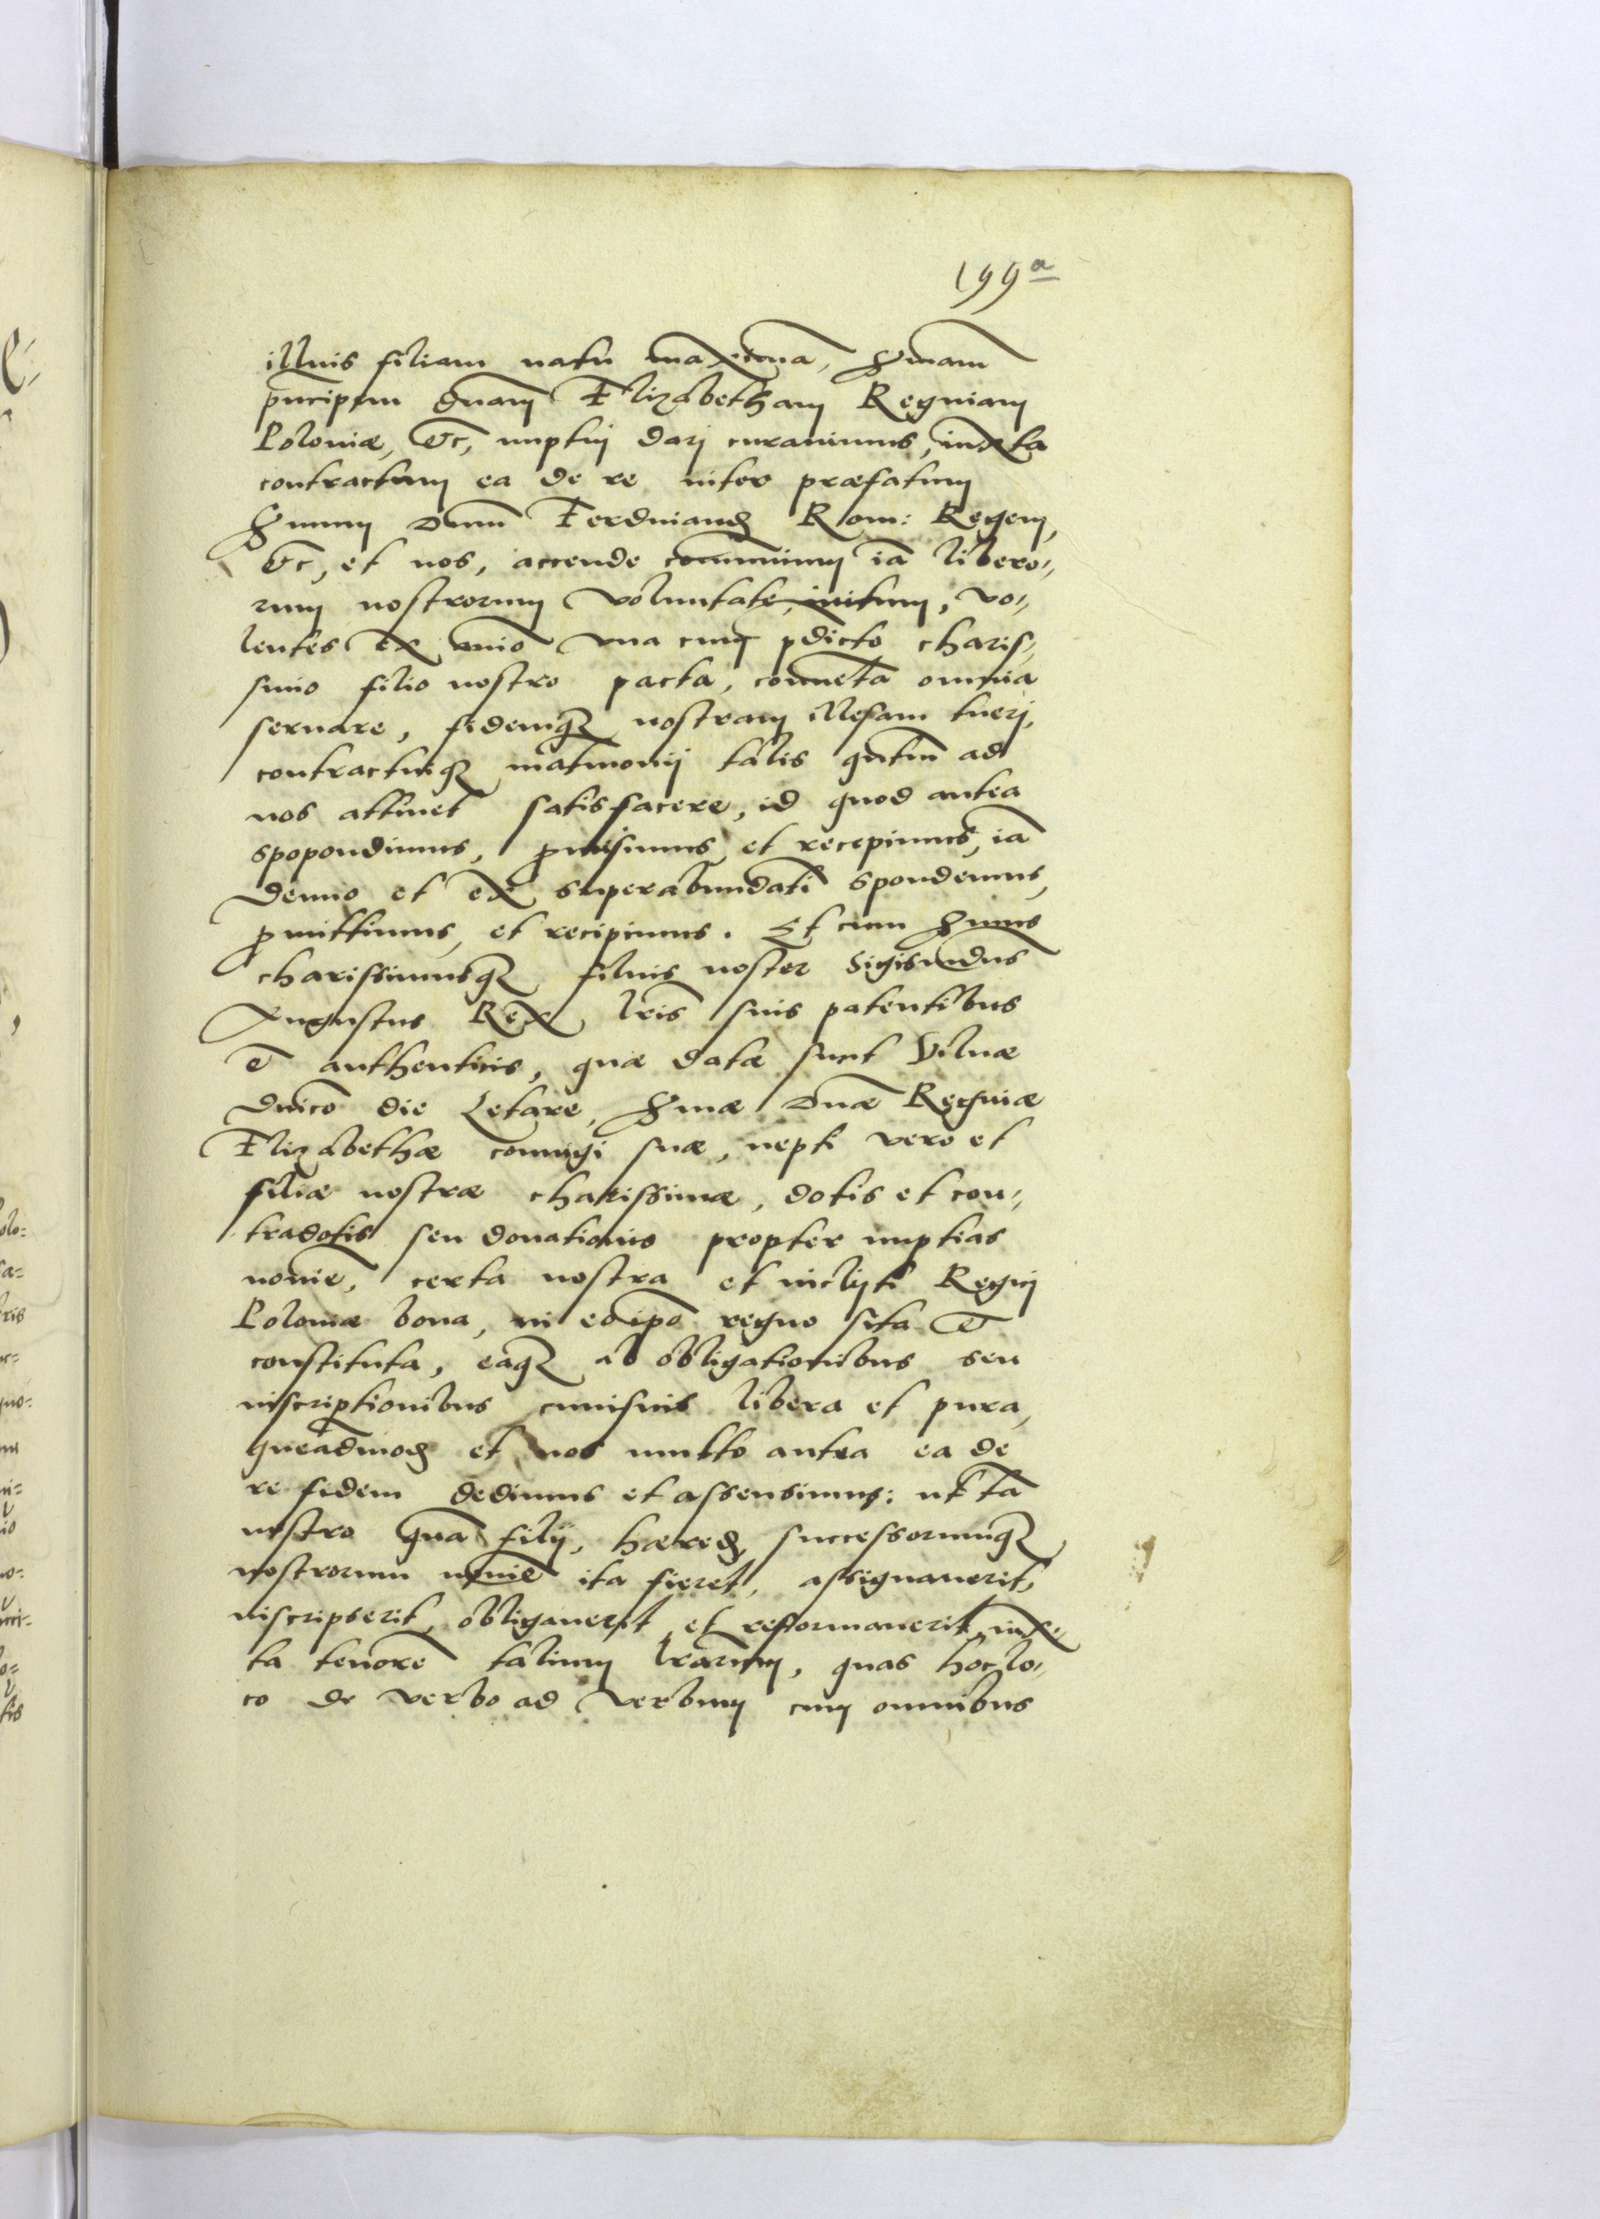 199 a
illius filiam natu maximā, S̄mam
pncipem dnam Elizabetham Reginam
Poloniæ, &c, nuptuj darj curauimus, iuxta
contractum ea de re inter præfatum
S̄mum Dnum Ferdinand Rom: Regem,
&c, et nos, accende communium iā libero⸗
rum nostrorum voluntate, initum, vo⸗
lentes ex animo vna cum pdicto charis⸗
simo filio nostro pacta, conuēta omnia
seruare, fidemq3 nostram illesam tuerj,
contractuiq3 matrimonij talis qntum ad
nos attinet satisfacere, id quod antea
spopondimus, pmisimus et recepimus, iā
denuo et ex superabundāti spondemus,
pmittimus, et recipimus. Et cum S̄mus
charissimusq3 filius noster Sigismūdus
Augustus Rex lris suis patentibus
& authenticis, quæ datæ sunt Vilnæ
dnico die Letare, S̄mæ Dnæ Reginæ
Elizabethæ coniugi suæ, nepti vero et
filiæ nostræ charissimæ, dotis et con⸗
tradotis seu donationis propter nuptias
noīe, certa nostra et inclyti Regnj
Poloniæ bona, in eo ipo regno sita &
constituta, eaq3 ab obligationibus seu
inscriptionibus cuiusuis libera et pura,
queadmod et nos multo antea ea de
re fidem dedimus et assensimus: ut tā
nostro qua filij, hæred, successorumq3
nostrorum noīe ita fieret, assignauerit,
inscripserit, obligauerit et reformauerit, iux⸗
ta tenorē talium lrarum, quas hoc lo⸗
co de verbo ad verbum cum omnibus